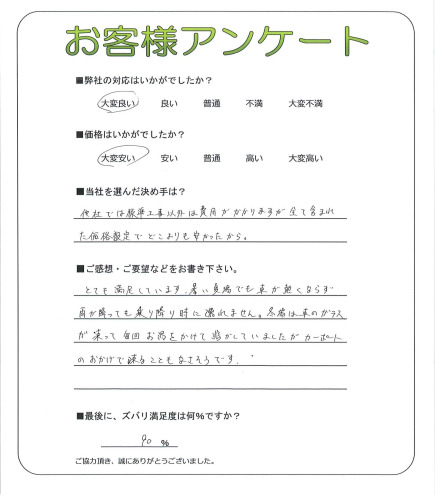 お客様アンケート
■弊社の対応はいかがでしたか？
大変良い 良い 普通 不満 大変不満
■価格はいかがでしたか？
大変安い 安い 普通 高い 大変高い
■当社を選んだ決め手は？
他社では標準工事以外は費用がかかりますが全て含まれ
た価格設定でどこよりも安かったから。
■ご感想・ご要望などをお書き下さい。
とても満足しています。暑い夏場でも車が熱くならず
雨が降っても乗り降り時に濡れません。冬場は車のガラス
が凍って毎回お湯をかけて溶かしていましたがカーポート
のおかげで凍ることもなさそうです。
■最後に、ズバリ満足度は何％ですか？
90 ％
ご協力頂き、誠にありがとうございました。